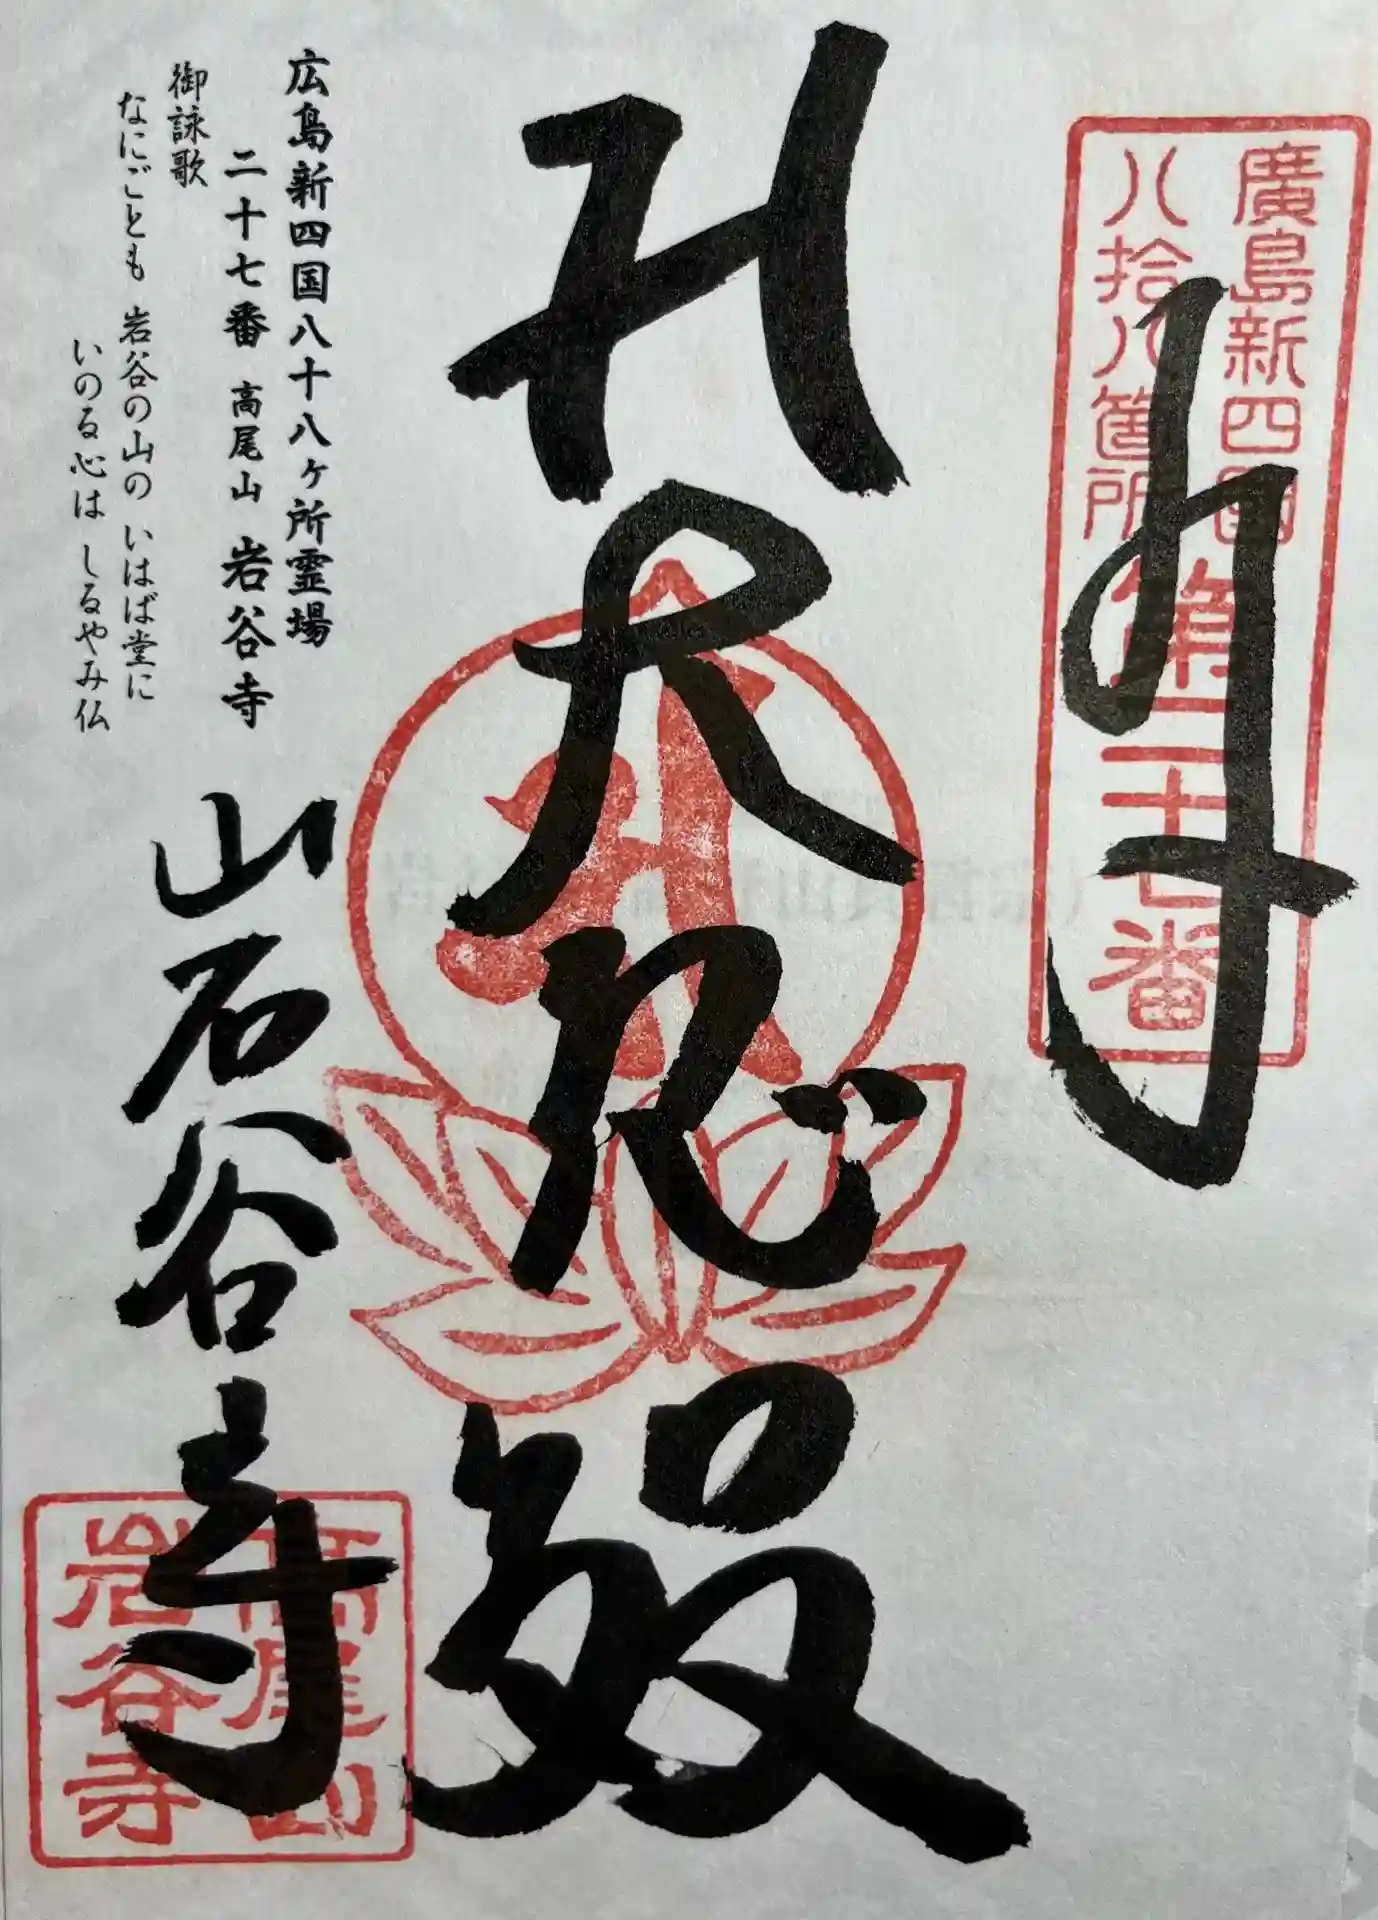 廣島新四國
八拾八箇所
第二十七番
大忍殿
岩谷寺
高尾山
岩谷寺
広島新四国八十八ヶ所霊場
二十七番 高尾山 岩谷寺
御詠歌
なにごとも 岩谷の山の いはば堂に
いのる心は しるやみ仏